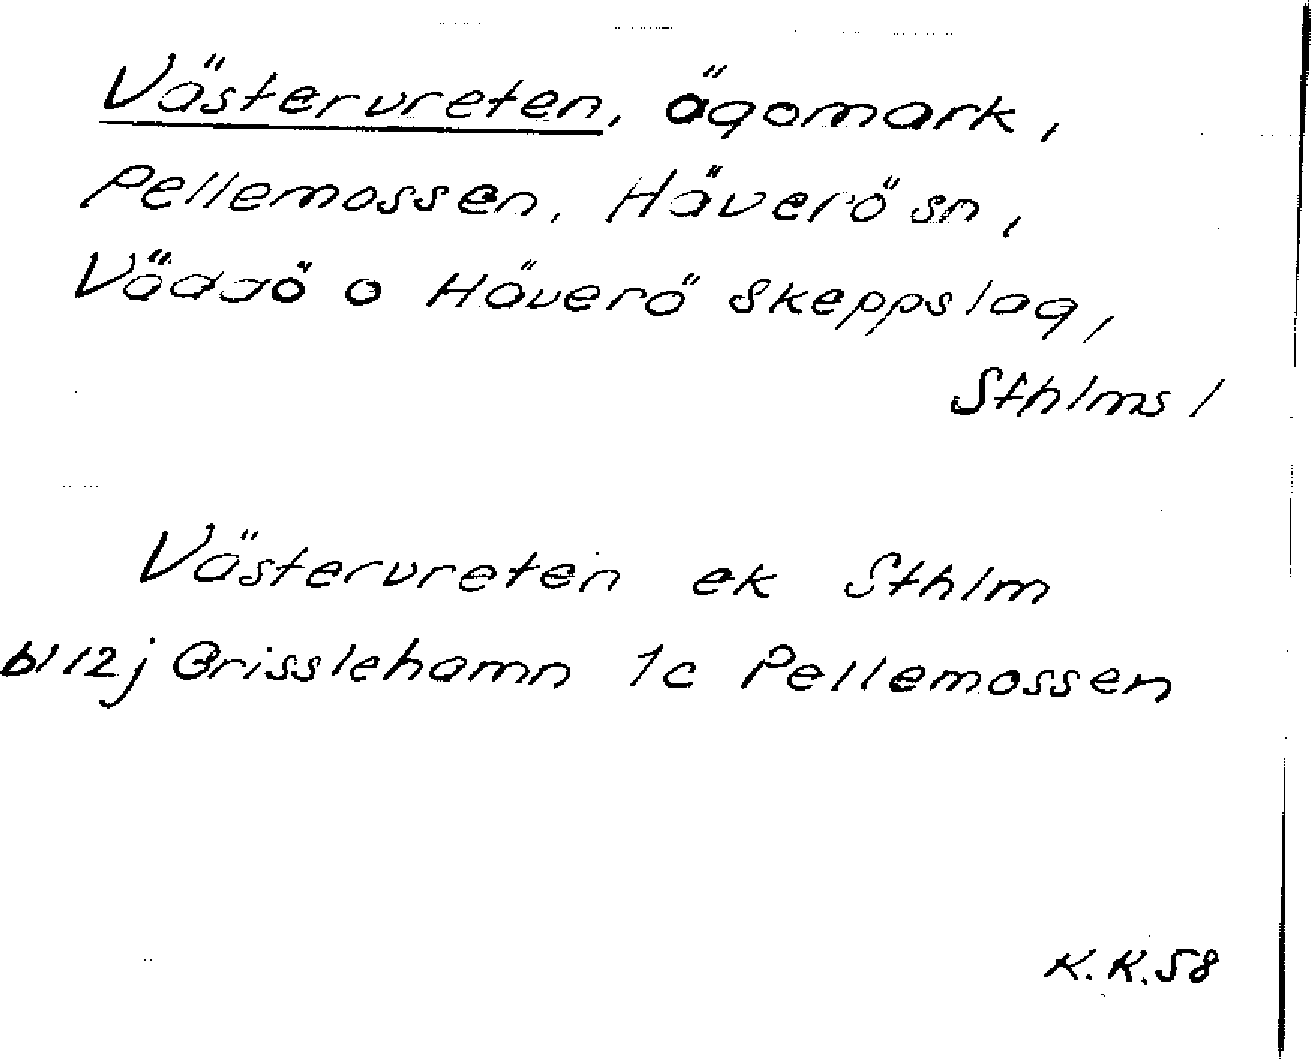 Västervreten, ägomark,
Pellemossen, Häverö sn,
Väddö o Häverö skeppslag,
Sthlms l
Västervreten ek Sthlm
bl 12j Grisslehamn 1c Pellemossen
K.K.58